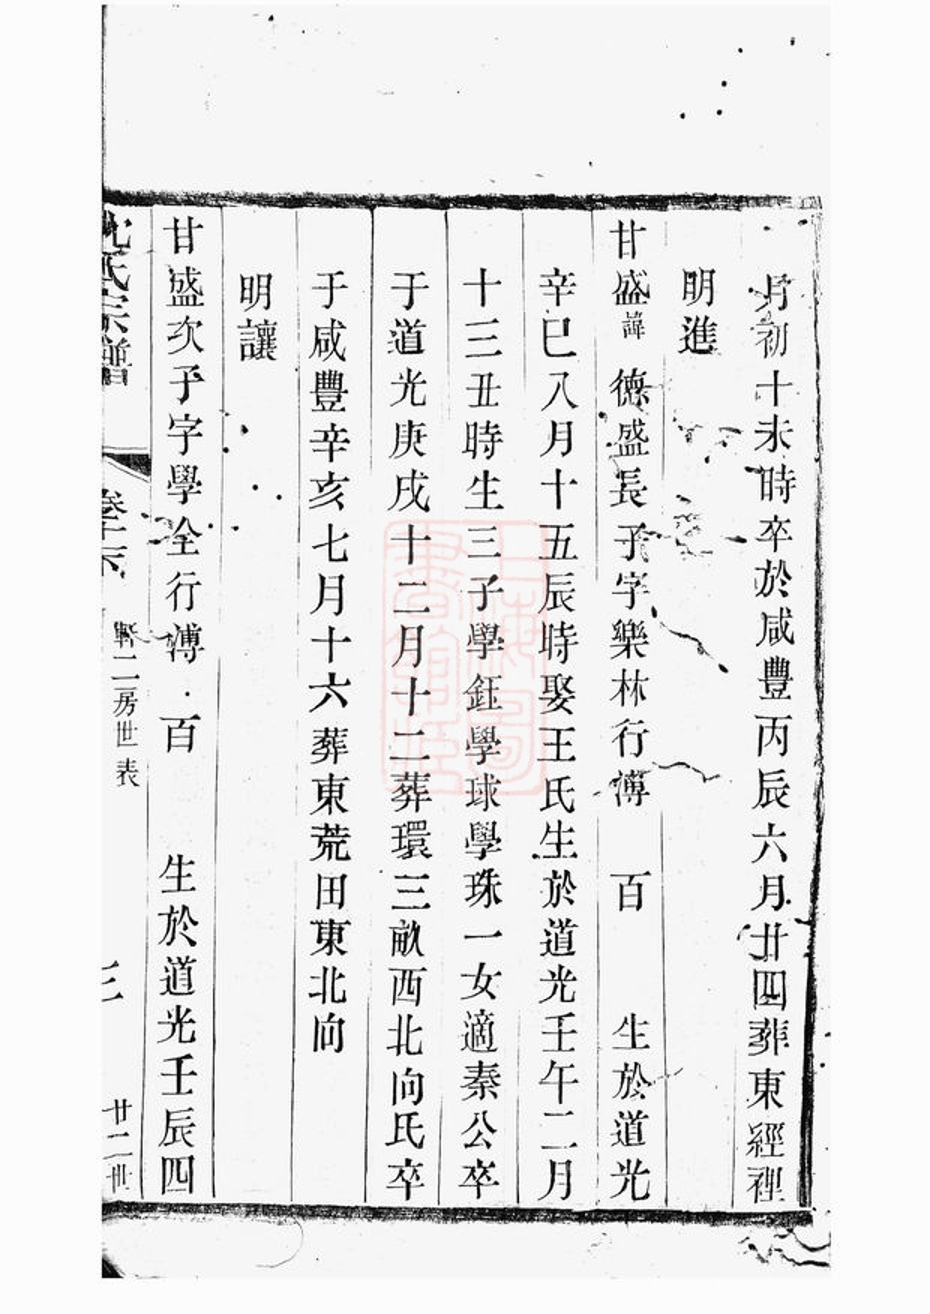 月初十未時卒於咸豐丙辰六月廿四葬東經裡
明進
甘盛諱德盛長子字樂林行溥 百 生於道光
辛巳八月十五辰時娶王氏生於道光壬午二月
十三丑時生三子學鈺學球學珠一女適秦公卒
于道光庚戌十二月十二葬環三畝西北向氏卒
于咸豐辛亥七月十六葬東荒田東北向
明讓
甘盛次子字學全行溥 百 生於道光壬辰四
沈氏宗譜 二房世表 廿二世